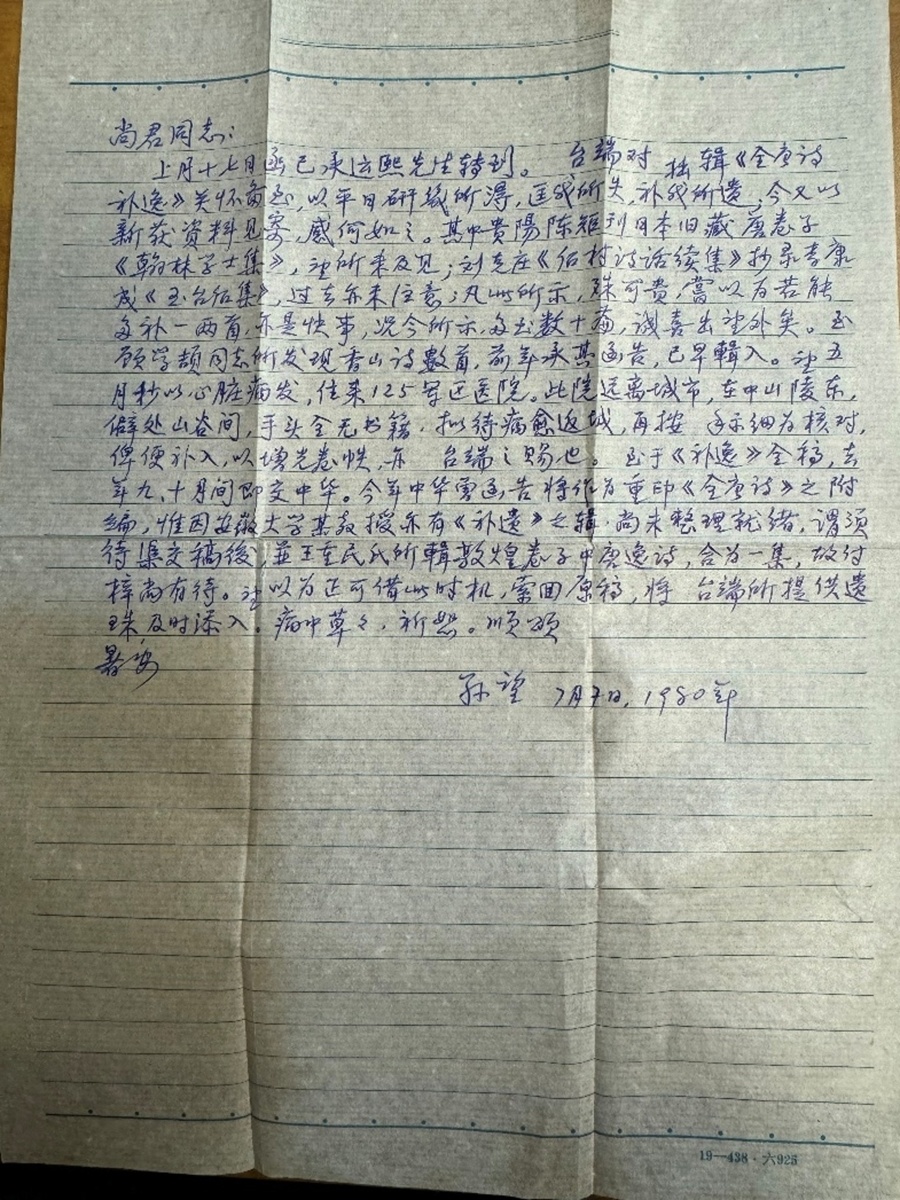 尚君同志：
上月十七日函已承运熙先生转到。 台端对 拙辑《全唐诗
补逸》关怀备至，以平日研幾所得，匡我所失，补我所遗，今又以
新获资料见寄，感何如之。其中貴陽陈矩刊日本旧藏唐卷子
《翰林学士集》，望所未及见；刘克庄《后村诗话续集》抄录李康
成《玉台后集》，过去亦未注意；凡此所示，殊可贵，嘗以为若能
多补一两首，亦是快事，况今所示，多至数十篇，诚喜出望外矣。至
顾学颉同志所发现香山诗數首，前年承其函告，已早輯入。望五
月杪以心脏病发，住来125军区医院。此院远离城市，在中山陵东，
僻处山谷间，手头全无书籍，拟待病愈返城，再按 手示细为核对，
俾便补入，以增光卷帙，亦 台端之赐也。至于《补逸》全稿，去
年九、十月间即交中华。今年中华曾函告将作为重印《全唐诗》之附
编，惟因安徽大学某教授亦有《补遗》之辑，尚未整理就绪，谓须
待集交稿後，並王重民氏所輯敦煌卷子中唐逸诗，合为一集，故付
梓尚有待。望以为正可借此时机，索回原稿，将 台端所提供遗
珠，及时添入。病中草々，祈恕。顺颂
暑安
孙望 7月7日，1980年
19—438·六925